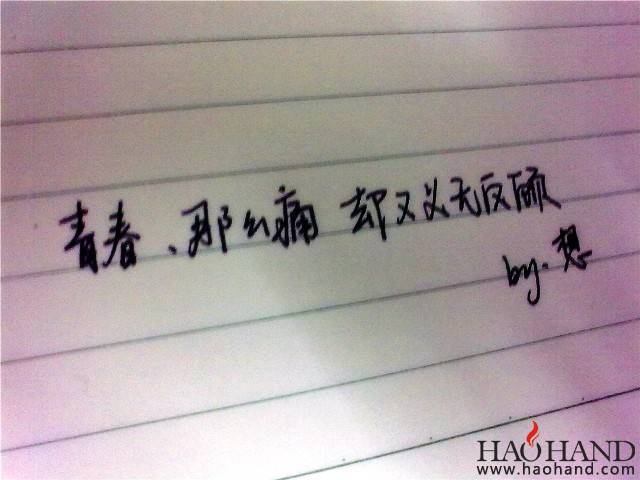 青春、那么痛 却又义无反顾
by.想
HAOHAND
www.haohand.com